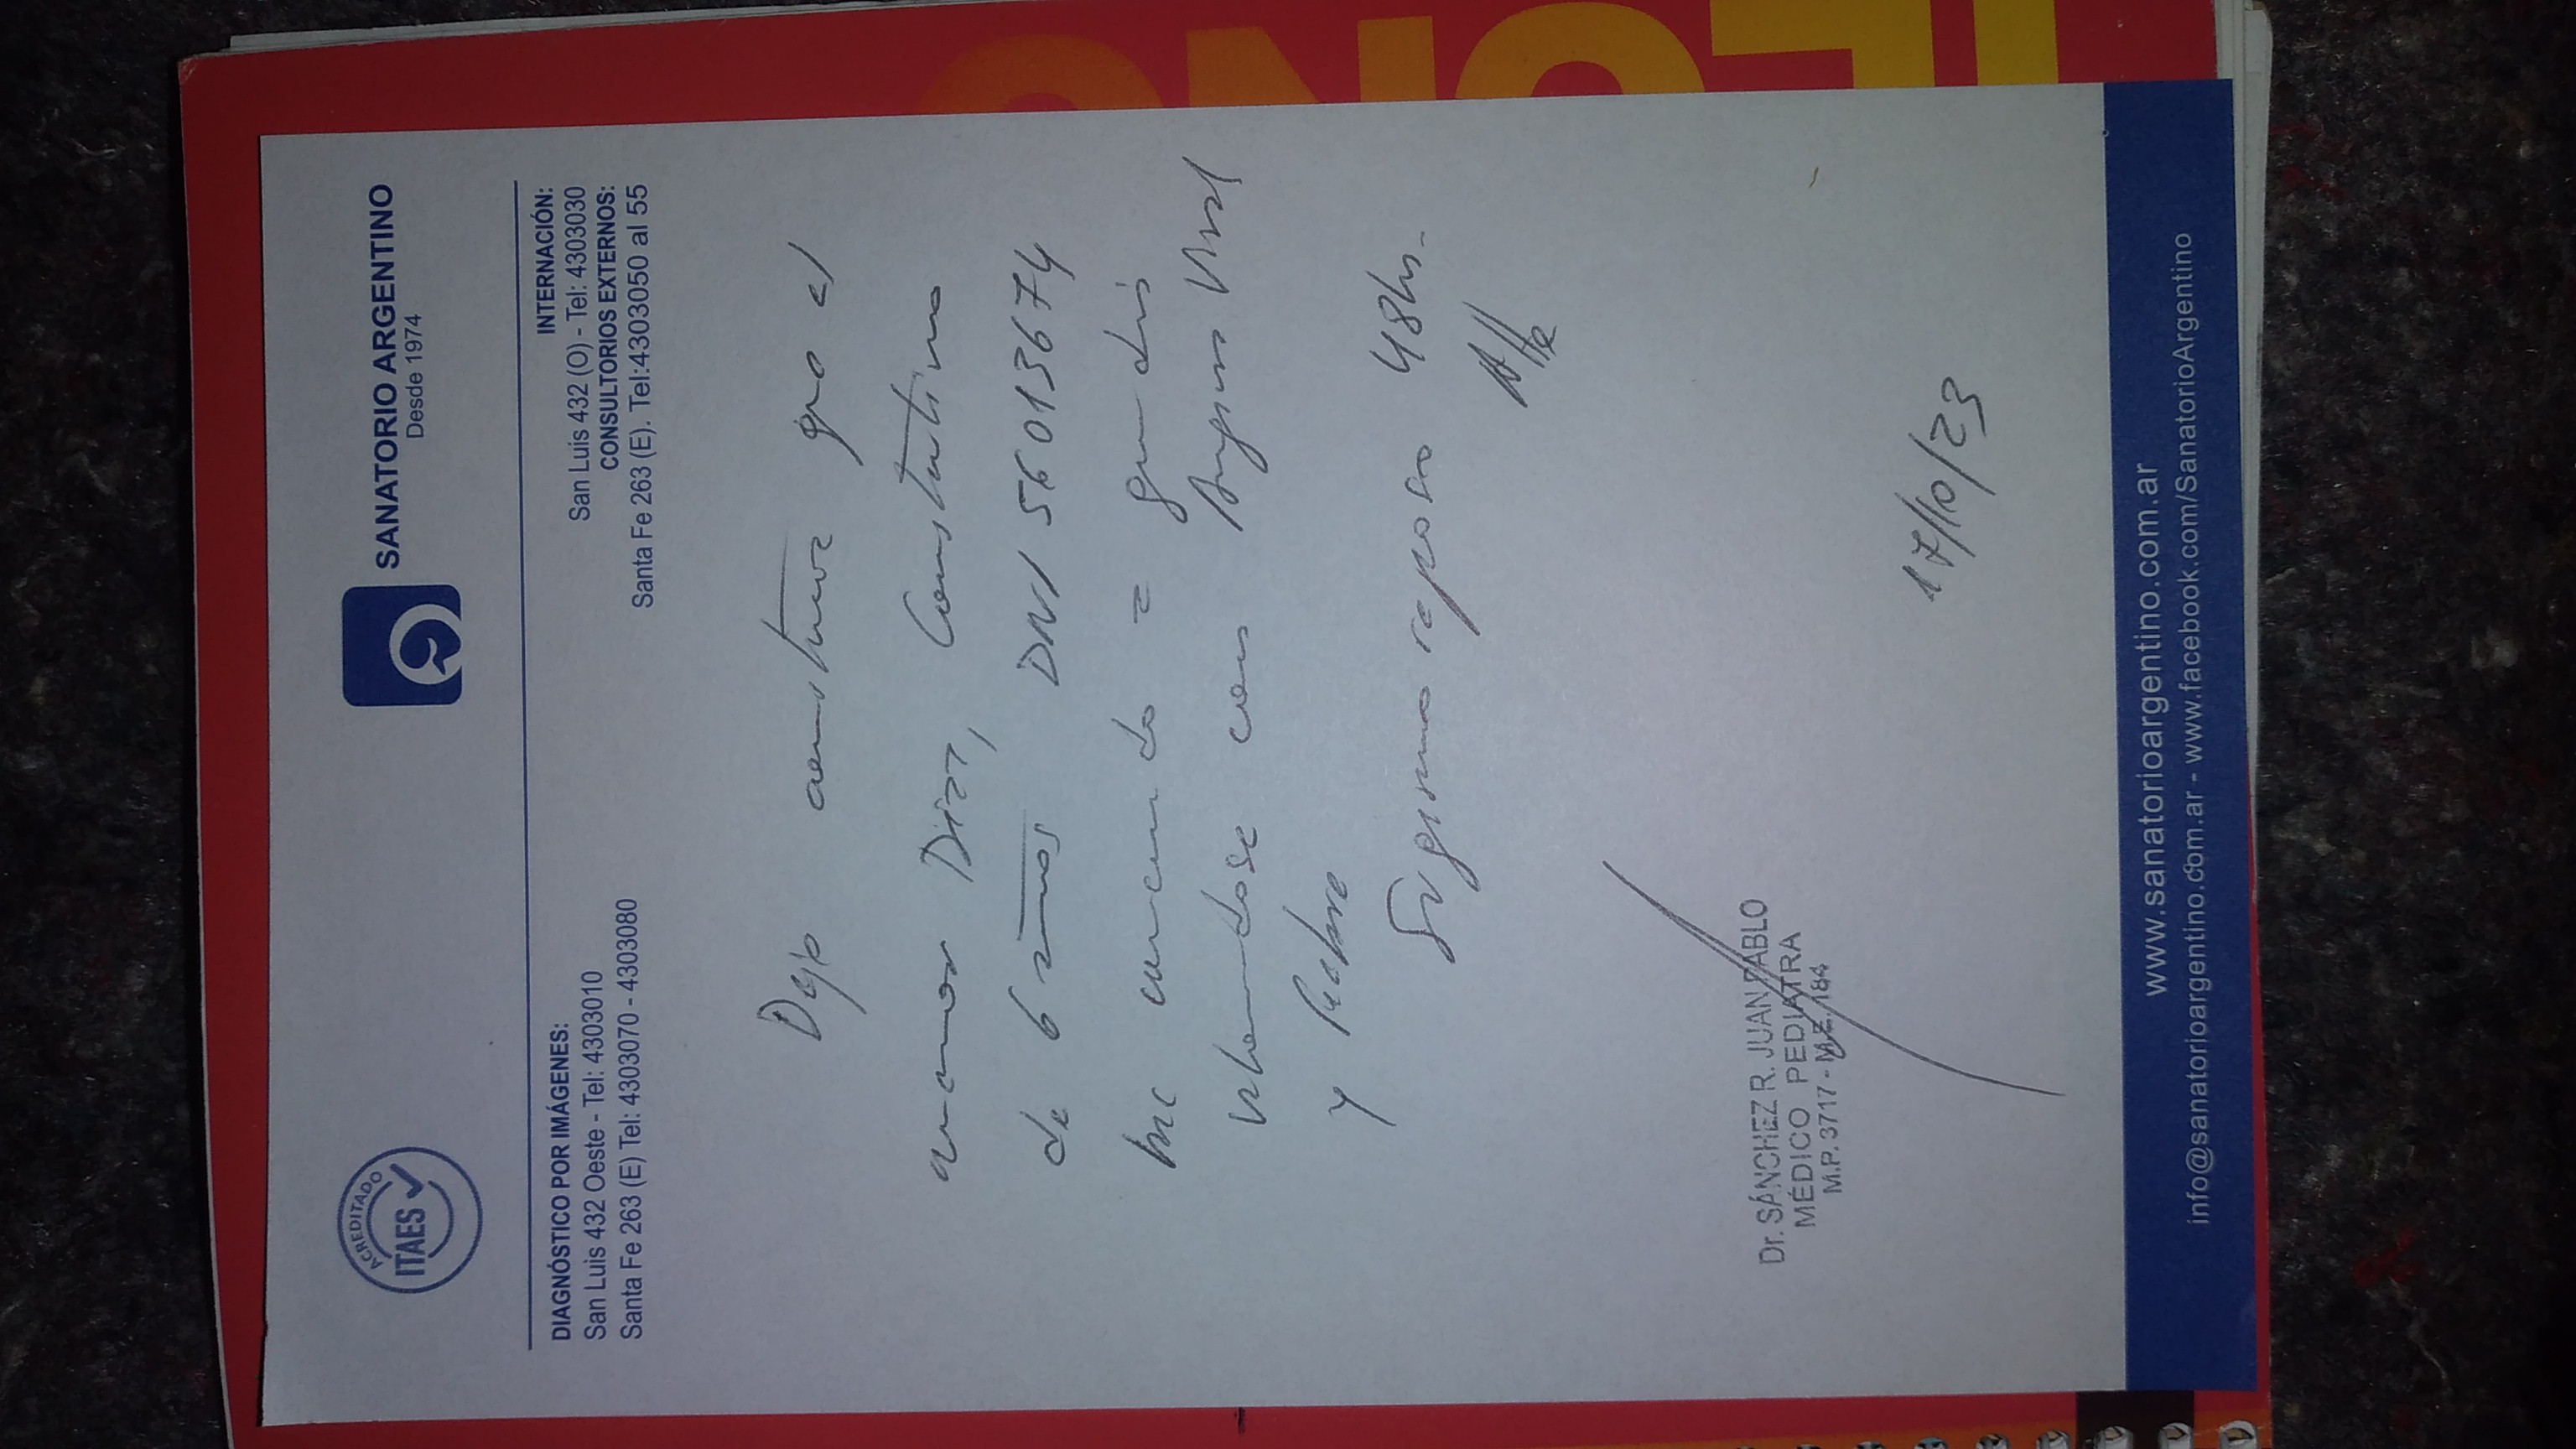 ACREDITADO
ITAES
SANATORIO ARGENTINO
Desde 1974
DIAGNÓSTICO POR IMÁGENES:
San Luis 432 Oeste - Tel: 4303010
Santa Fe 263 (E) Tel: 4303070 - 4303080
INTERNACIÓN:
San Luis 432 (O) - Tel: 4303030
CONSULTORIOS EXTERNOS:
Santa Fe 263 (E). Tel:4303050 al 55
Dejo constancia que el
menor Diaz, Constantino
de 6 años DNI 56013674
ha concurrido a guardia
con
y fiebre
Sugiero reposo 48hs.
Dr. SÁNCHEZ R. JUAN PABLO
MÉDICO PEDIATRA
M.P. 3717 - M.E. 184
17/10/23
www.sanatorioargentino.com.ar
info@sanatorioargentino.com.ar - www.facebook.com/SanatorioArgentino